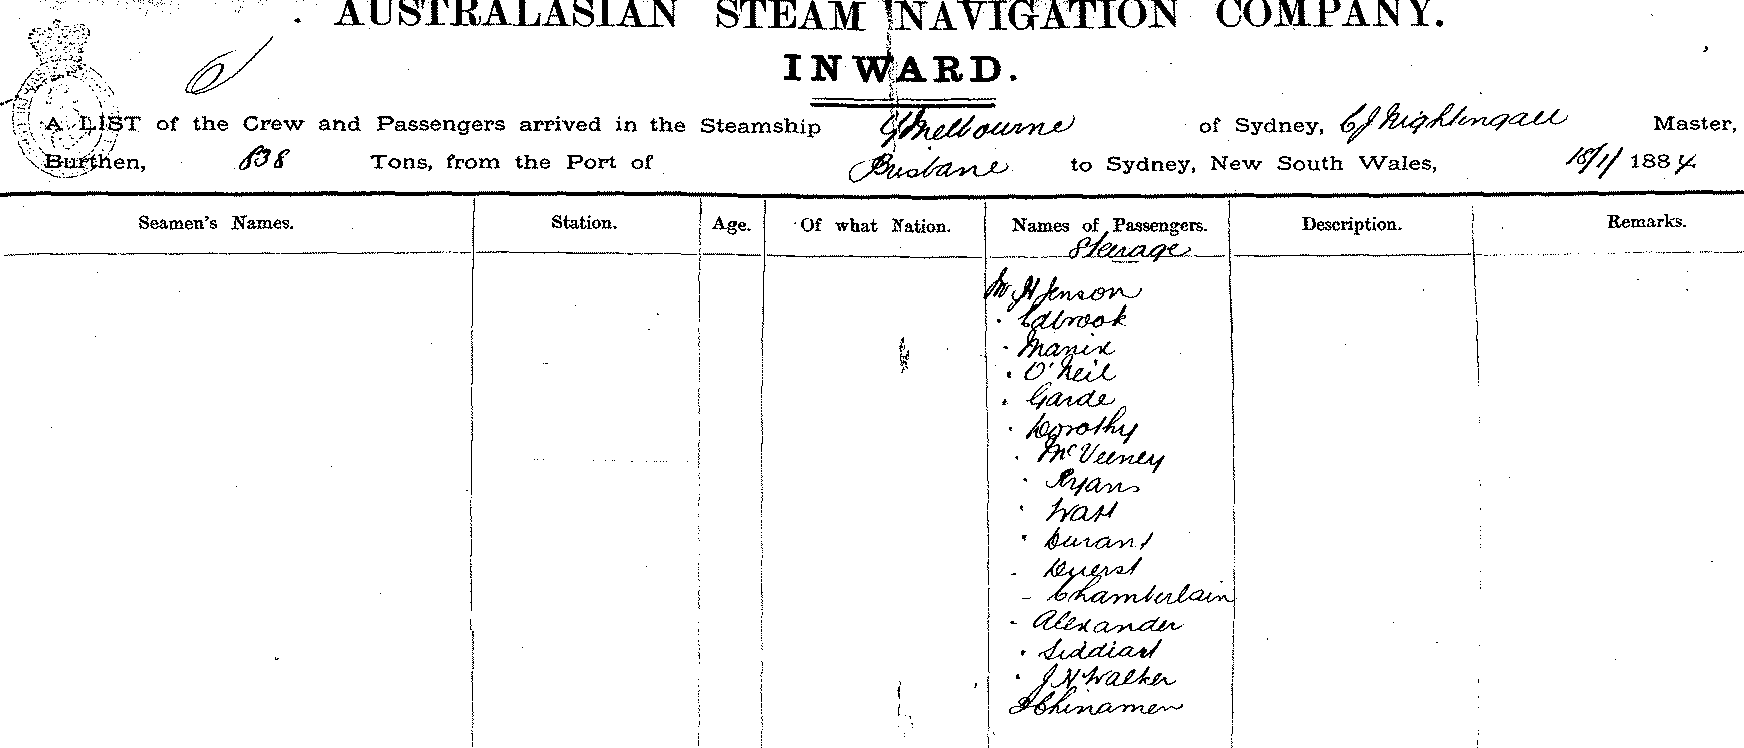 AUSTRALASIAN STEAM NAVIGATION COMPANY.
INWARD.
A LIST of the Crew and Passengers arrived in the Steamship Melbourne of Sydney, CJ Nightingall Master,
Burthen, 838 Tons, from the Port of Brisbane to Sydney, New South Wales, 18/1/ 1884
Seamen's Names. Station. Age. Of what Nation. Names of Passengers. Description. Remarks.
Steerage
Mr H Jenson
" Edbrook
" Manix
" O'Neil
" Garde
" Dorothy
" McVeeney
" Ryans
" Watt
" Durant
" Duerst
" Chamberlain
" Alexander
" Siddiart
" J H Walker
Chinamen